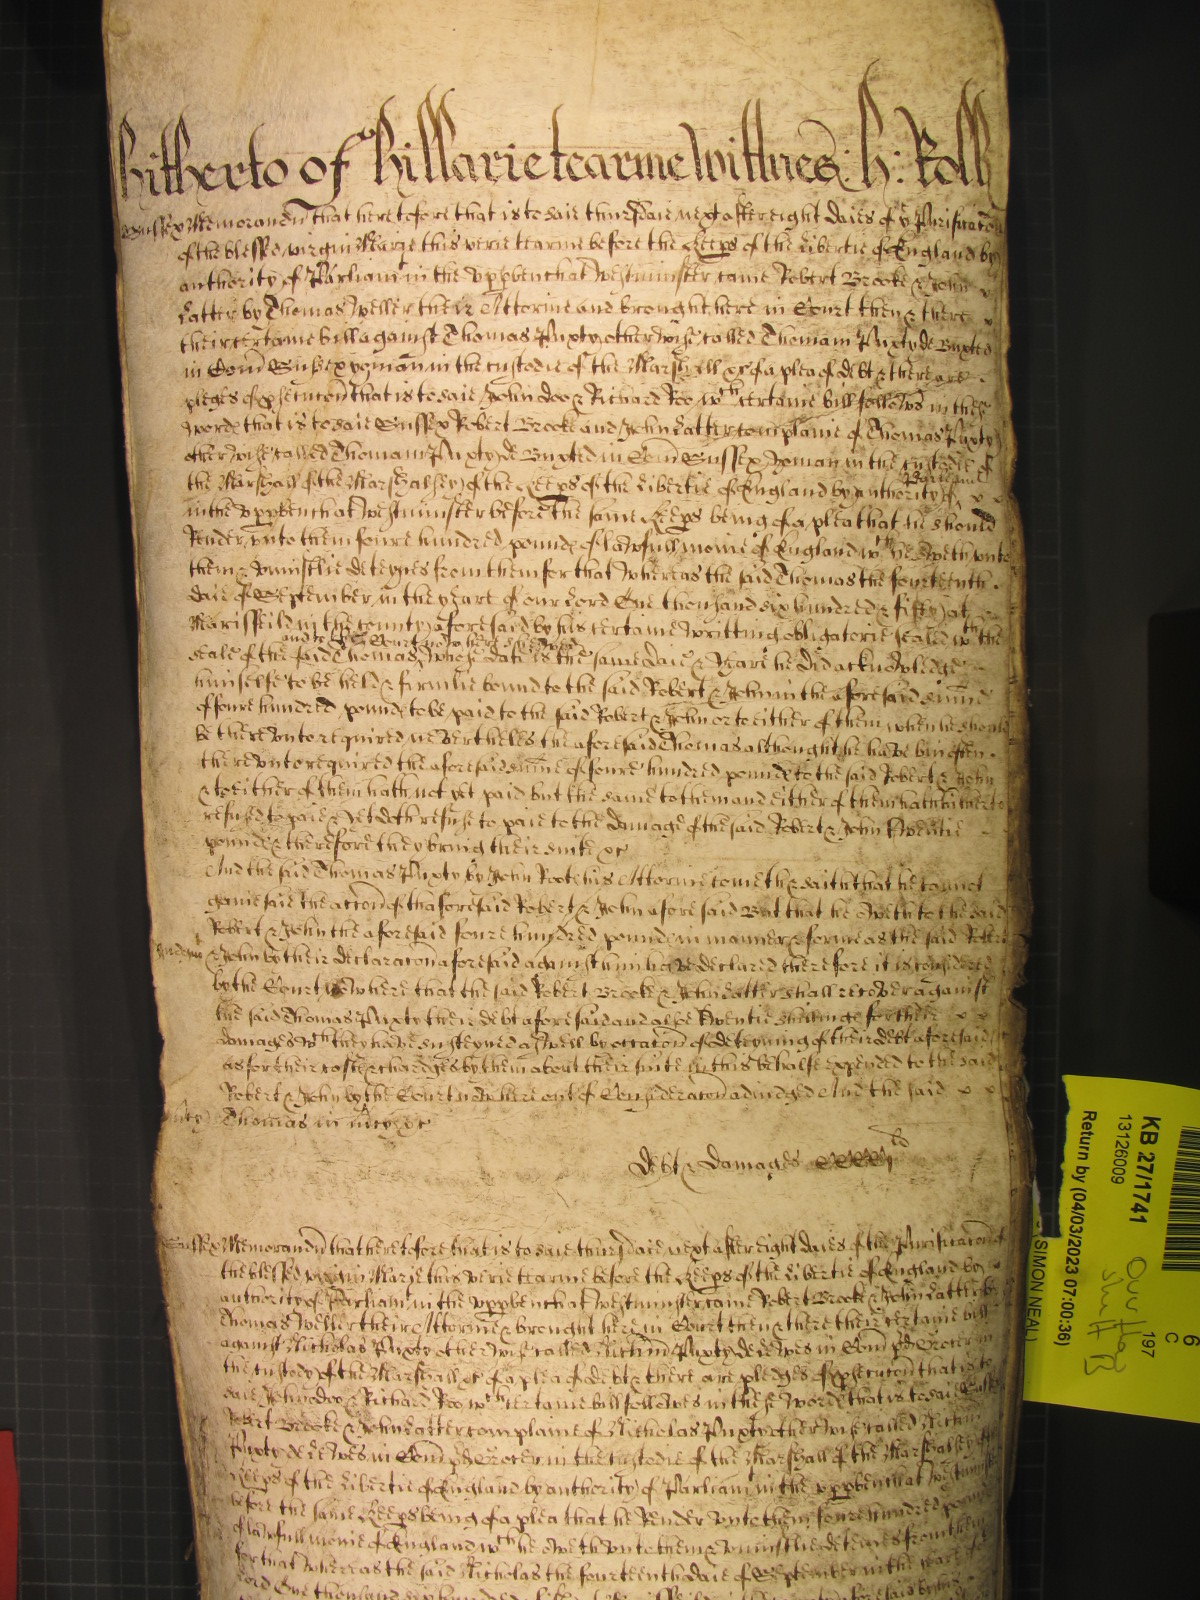 hitherto of hillarie tearme Wittnes: H: Roll
Sussex Memorandũ that heretofore that is to saie thursdaie next after eight daies of ye Purificacõn
of the blessed virgin Marye this verie tearme before the Keeps of the libertie of England by
authority of Parliamt in the vpp bench at Westminster came Robert Brooke & John
Latter by Thomas Weller their Attornie and brought here in Court then & there
their certaine bill against Thomas Puxty otherwise called Thomam Puxty de Buxted
in Com̃ Sussex yoman in the custodie of the Marshall &c of a plea of debt & there are
pleges of psecucõn that is to saie John doo & Richard Roo wch certaine bill followes in these
wordes that is to saie Sussex Robert Brooke and John Latter complaine of Thomas Puxty
otherwise called Thomam Puxty de Buxted in Com̃ Sussex yoman in the custodie of
the Marshall of the Marshalsey of the Keeps of the libertie of England by authority of Parliamt
in the vpp bench at Westminster before the same Keeps being of a plea that he should
Render vnto them foure hundred pounds of lawfull monie of England wch he oweth vnto
them & vniustlie deteynes from them for that whereas the said Thomas the fourteenth
daie of September in the yeare of our Lord One thousand six hundred & fifty at
Marisfeild in the county aforesaid by his certaine writting obligatorie sealed wth the
and to the Court now here shewed
seale of the said Thomas whose date is the same daie & yeare he did acknowledge
himselfe to be held & firmlie bound to the said Robert & John in the aforesaid sum̃e
of foure hundred pounds to be paid to the said Robert & John or to either of them when he should
be therevnto required neverthelesse the aforesaid Thomas althought he have bin often
therevnto required the aforesaid sum̃e of foure hundred pounds to the said Robert & John
& to either of them hath not yet paid but the same to them and either of them hath hitherto
refused to paie & yet doth refuse to paie to the damage of the said Robert & John twentie
pounds & therefore they bring their suite &c
And the said Thomas Puxty by John Roote his Attornie cometh & saith that he cannot
gainesaie the accõn of thaforesaid Robert & John aforesaid But that he oweth to the said
Robert & John the aforesaid foure hundred pounds in manner & forme as the said Robert
& John by their declaracõn aforesaid against him have declared therefore it is considered
by the Court nowe here that the said Robert Brooke & John Latter shall recover against
the said Thomas Puxty their debt aforesaid and alsoe twentie shillings for their
damages wch they have susteyned aswell by occacõn of deteyning of their debt aforesaid
as for their costs & chardges by them about their suite in this behalfe expended to the said
Robert & John by the Court nowe here out of Consideracõn adiudged And the said
Thomas in mercy &c
debt & damages
Sussex Memorandũ that heretofore that is to saie thursdaie next after eight daies of the Purificacõn of
the blessed virgin Marie this verie tearme before the Keeps of the libertie of England by
authority of Parliamt in the vpp bench at Westminster came Robert Brooke & John Latter by
Thomas Weller their Attornie & brought here in Court then & there their certaine bill
against Nicholas Puxty otherwise called Nichm̃ Puxty de Lewes in Com̃ pd Grocer in
the custody of the Marshall &c of a plea of debt & there are pledges of psecucõn that is to
saie John doo & Richard Roo wch certaine bill followes in these words that is to saie Sussex
Robert Brooke & John Latter complaine of Nicholas Puxty otherwise called Nichm̃
Puxty de Lewes in Com̃ pd Grocer in the custodie of the Marshall of the Marshalsey of
Keeps of the libertie of England by authority of Parliamt in the vpp bench at Westminster
before the same Keeps being of a plea that he Render vnto them foure hundred pounds
of lawfull monie of England wch he oweth vnto them & vniustlie deteines from them
for that whereas the said Nicholas the fourteenth daie of September in the yeare of
Lord One thousand six hundred & fifty
KB 27/1741
13126009
Return by (04/03/2023 07:00:36)
(SIMON NEAL)
197
C
6